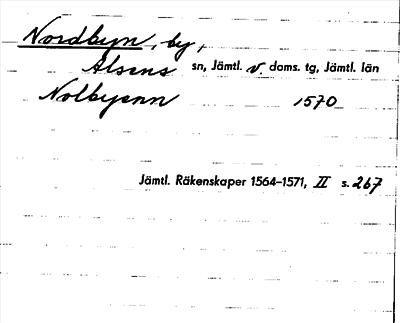 Nordbyn, by,
Alsens sn, Jämtl. v. doms. tg, Jämtl. län
Nolbyenn 1570
Jämtl. Räkenskaper 1564–1571, II s. 267